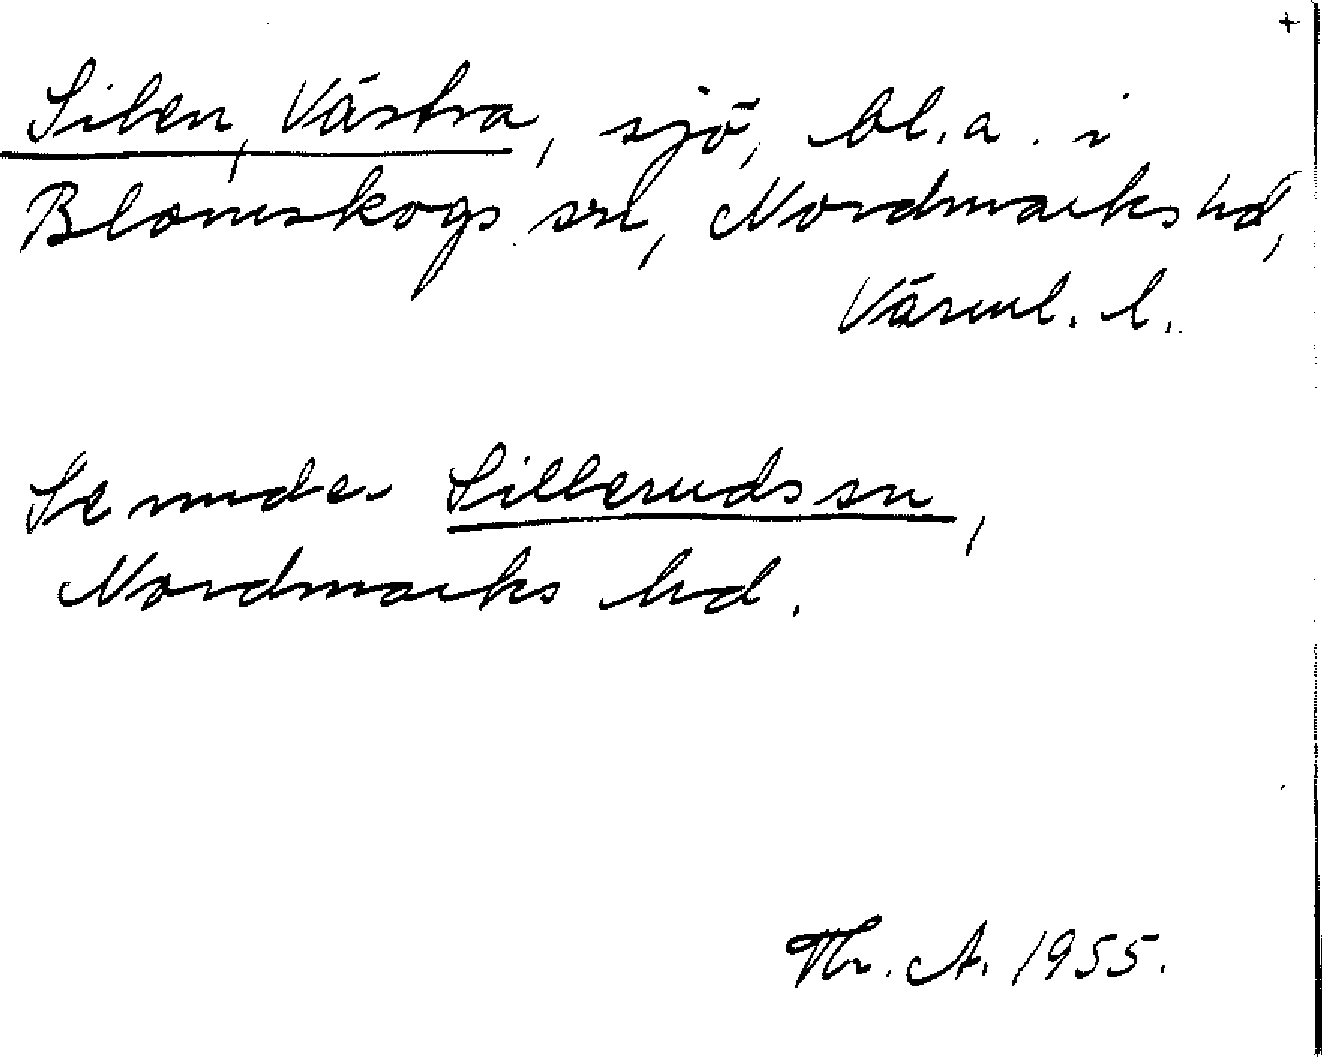 +
Silen, Västra, sjö, bl.a. i
Blomskogs sn, Nordmarks hd,
Värml. l.
Se under Sillerudssn,
Nordmarks hd.
Th. A. 1955.